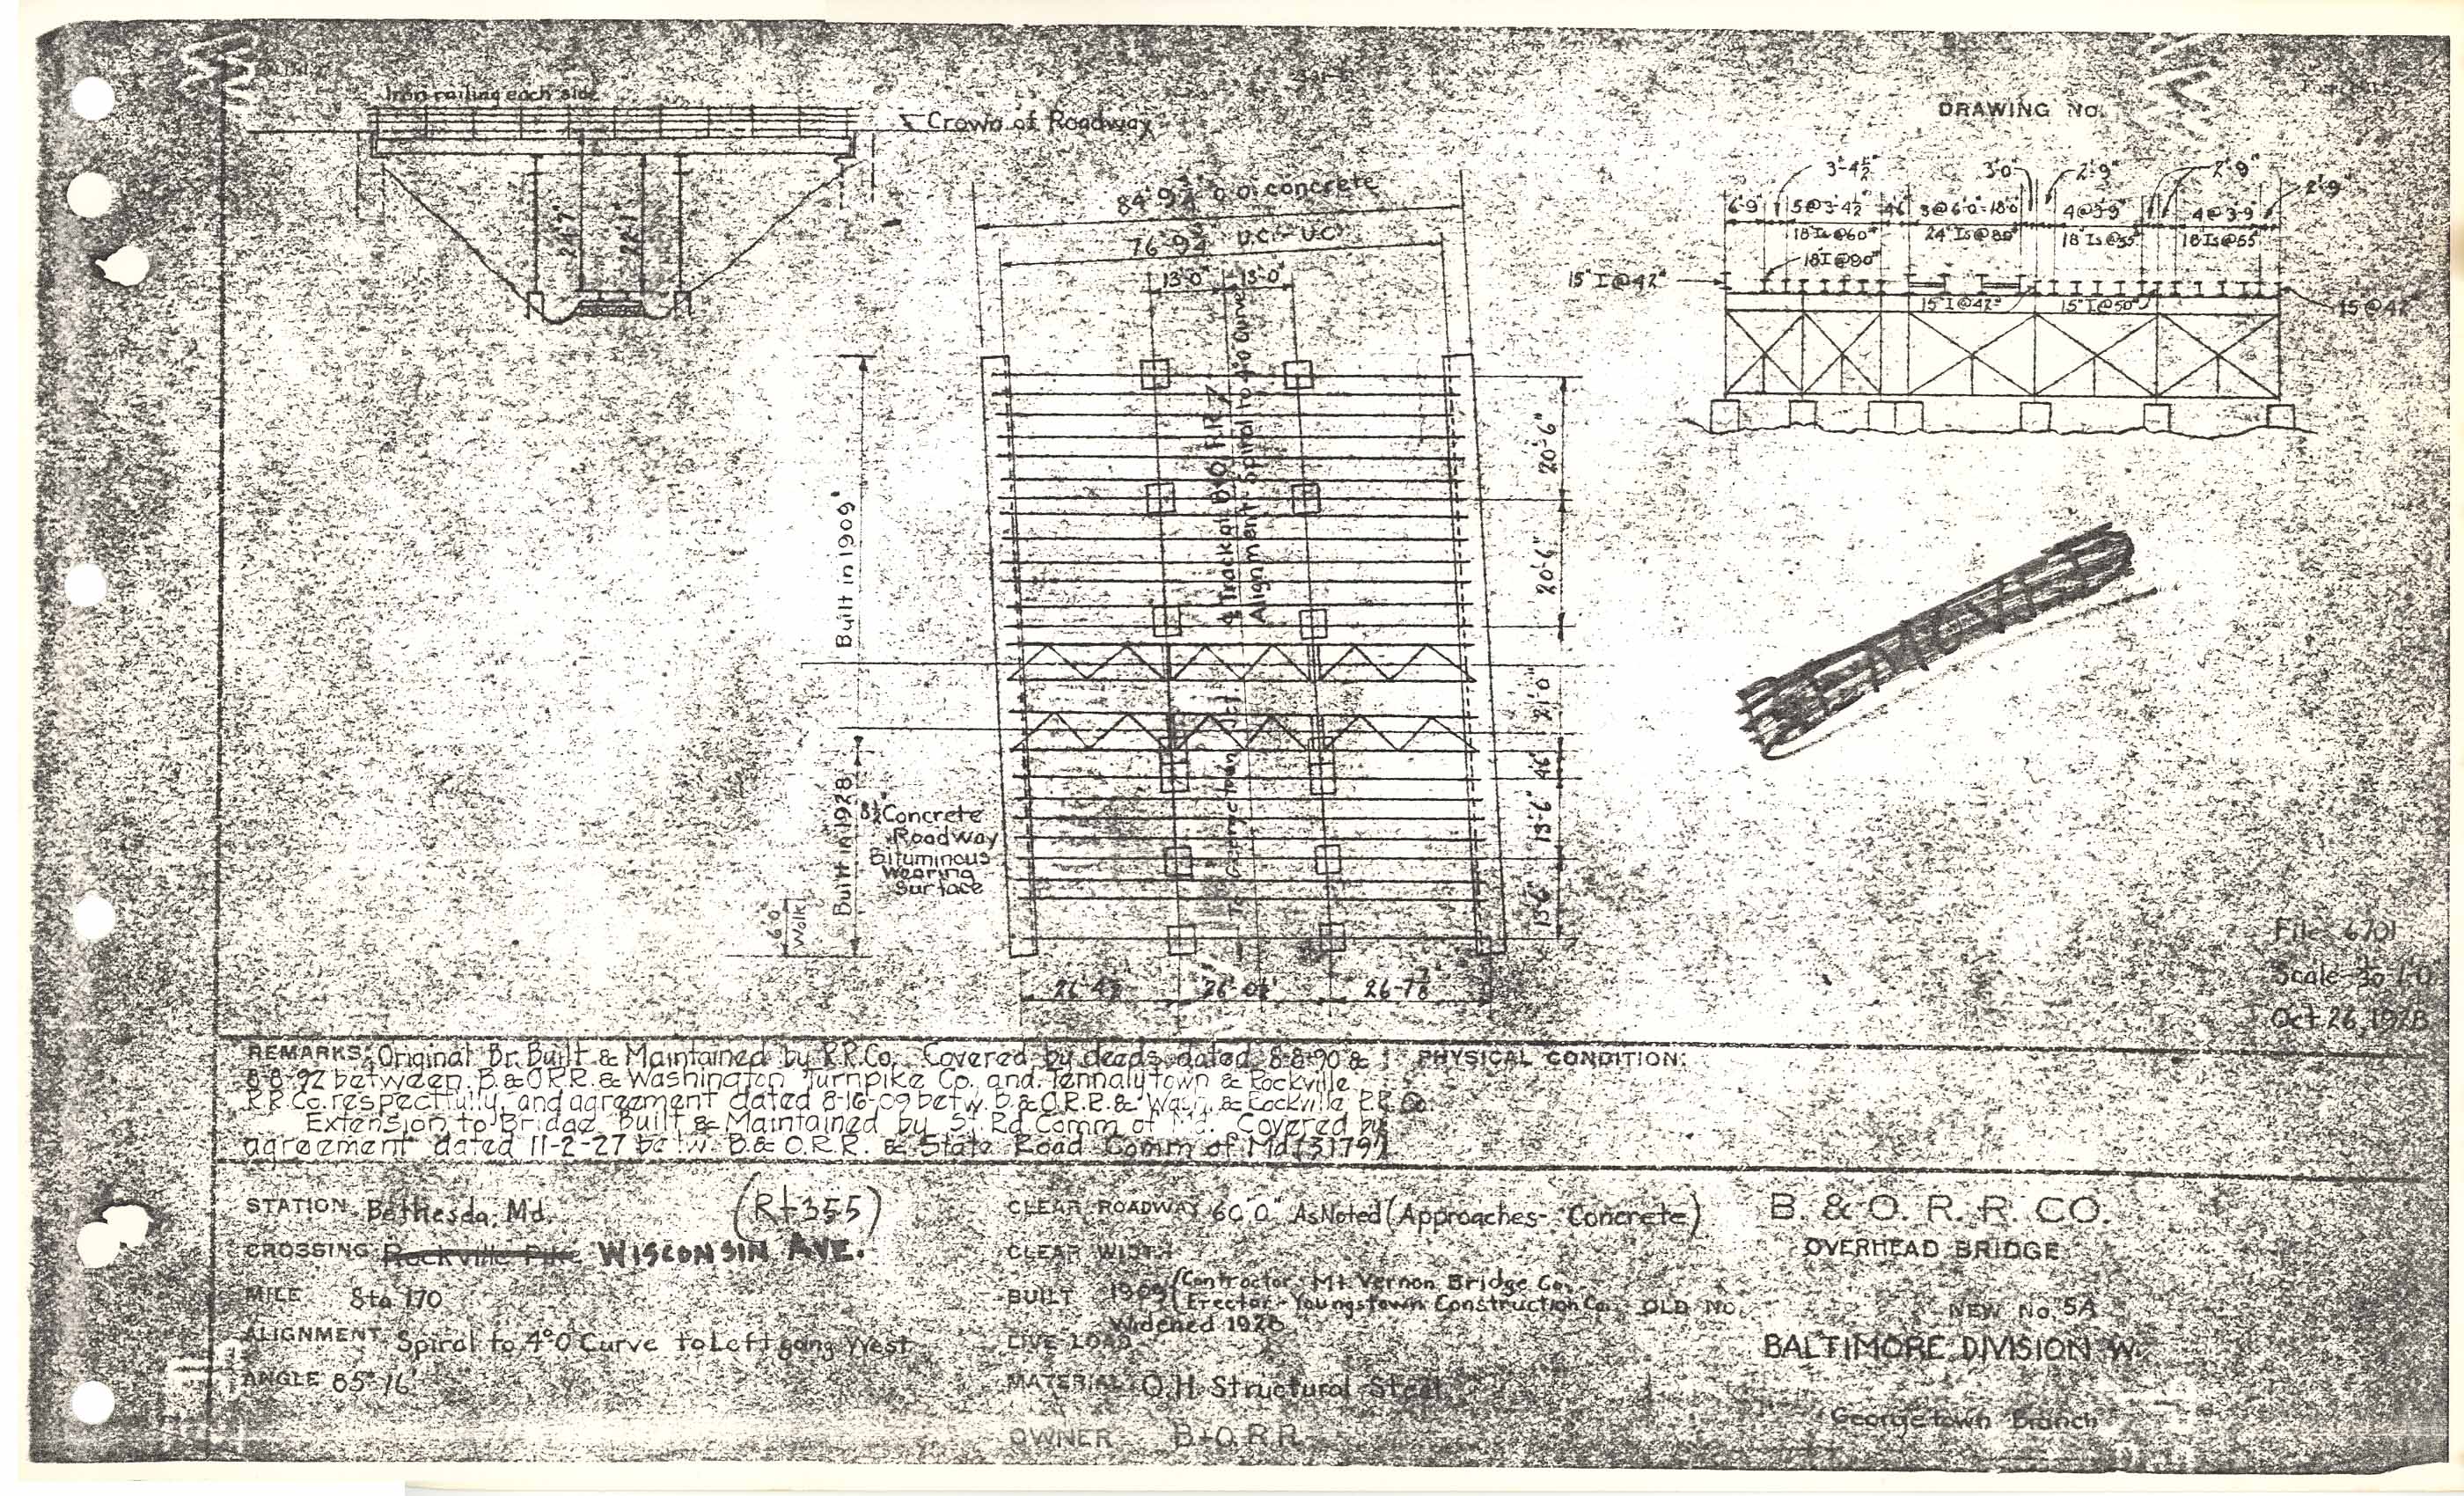 Iron railing each side
Crown of Roadway
24'-7"
22'-1"
DRAWING NO.
84'-9¼" o.o. concrete
76'-9¼" U.C. - U.C.
13'-0" 13'-0"
3'-4½" 3'-0" 2'-9" 2'-9" 2'-9"
6'9" 5@3'-4½" 4'6" 3@6'-0"=18'-0" 4@3'-9" 4@3-9"
18"Is@60# 24"Is@80# 18"Is@55# 18"Is@55#
18"I@80#
15"I@42#
15"I@42# 15"I@50#
15@42#
Built in 1909
℄ Track of B&O RR
Alignment - Spiral to 4°0' Curve
20'-6"
20'-6"
21'-0"
4'6"
13'-6"
13'-6"
Built in 1928
8½" Concrete
Roadway
Bituminous
Wearing
Surface
6'0"
Walk
To Georgetown Jct.
26'-4½" 26'-0½" 26'-7⅞"
REMOVED
File 6701
Oct 26, 1928
REMARKS: Original Br. Built & Maintained by R.R.Co. Covered by deeds dated 8-8-90 &
8-8-92 between B.&O.R.R. & Washington Turnpike Co. and Tennalytown & Rockville
R.R.Co. respectfully, and agreement dated 8-16-09 betw. B.&O.R.R. & Wash. & Rockville R.R.Co.
Extension to Bridge Built & Maintained by St. Rd Comm of Md. Covered by
agreement dated 11-2-27 betw. B.& O.R.R. & State Road Comm of Md (3179)
PHYSICAL CONDITION:
STATION Bethesda, Md. (Rt 355)
CROSSING Rockville Pike WISCONSIN AVE.
MILE Sta 170
ALIGNMENT Spiral to 4°0' Curve to Left going West
ANGLE 85°-16'
CLEAR ROADWAY 60'0" As Noted (Approaches - Concrete)
CLEAR WIDTH
BUILT 1909 (Contractor - Mt. Vernon Bridge Co.
Erector - Youngstown Construction Co.
Widened 1928
LIVE LOAD
MATERIAL O.H. Structural Steel
OWNER B+O.R.R.
B. & O. R. R. CO.
OVERHEAD BRIDGE
OLD NO. NEW No. 5A
BALTIMORE DIVISION W.
Georgetown Branch